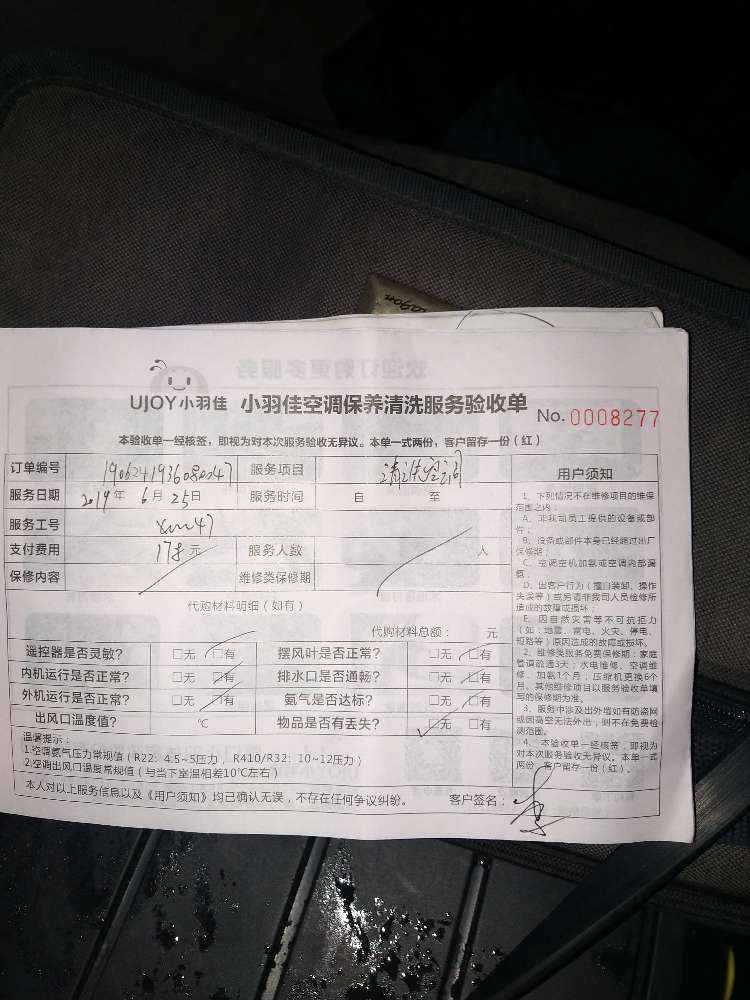 欢迎订购更多服务
UJOY小羽佳 小羽佳空调保养清洗服务验收单 No. 0008277
本验收单一经核签，即视为对本次服务验收无异议。本单一式两份，客户留存一份（红）
订单编号 服务项目 清洗空调
服务日期 2019年6月25日 服务时间 自 至
服务工号 xm47
支付费用 178元 服务人数 人
保修内容 维修类保修期
代购材料明细（如有）
代购材料总额： 元
遥控器是否灵敏? □无 □有 摆风叶是否正常? □无 □有
内机运行是否正常? □无 □有 排水口是否通畅? □无 □有
外机运行是否正常? □无 □有 氨气是否达标? □无 □有
出风口温度值? ℃ 物品是否有丢失? □无 □有
温馨提示：
1.空调氨气压力常规值（R22：4.5~5压力，R410/R32：10~12压力）
2.空调出风口温度常规值（与当下室温相差10℃左右）
本人对以上服务信息以及《用户须知》均已确认无误，不存在任何争议纠纷。 客户签名：
用户须知
1、下列情况不在维修项目的维保
范围之内：
A、非我司员工提供的设备或部
件；
B、设备或部件本身已经超过出厂
保修期；
C、空调空机加氨或空调内部漏
氨；
D、因客户行为（擅自装卸、操作
失误等）或另请非我司人员检修所
造成的故障或损坏；
E、因自然灾害等不可抗拒力
（如：地震、雷电、火灾、停电、
短路等）原因造成的故障或损坏。
2、维修类服务免费保修期：家庭
管道疏通3天；水电维修、空调维
修、加氨1个月；压缩机更换6个
月。其他维修项目以服务验收单填
写的保修期为准。
3、服务中涉及出外墙如有防盗网
或因高空无法外出，则不在免费检
测范围。
4、本验收单一经核签，即视为
对本次服务验收无异议。本单一式
两份，客户留存一份（红）。